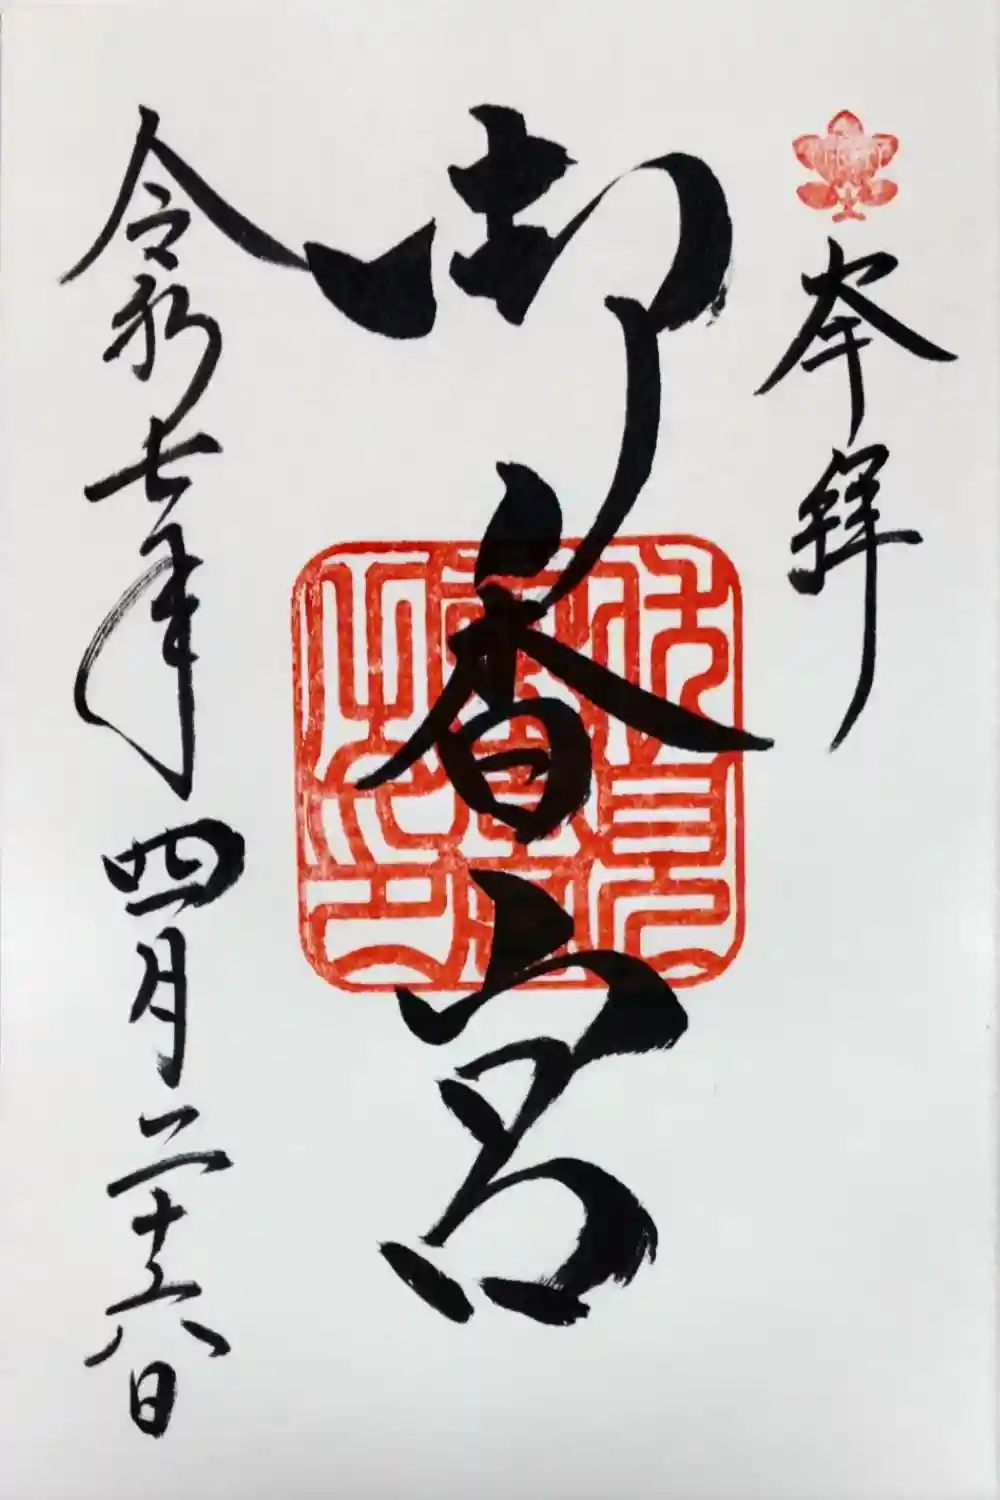 奉拝
御香宮
伏見
御香宮
之印
令和七年四月二十六日